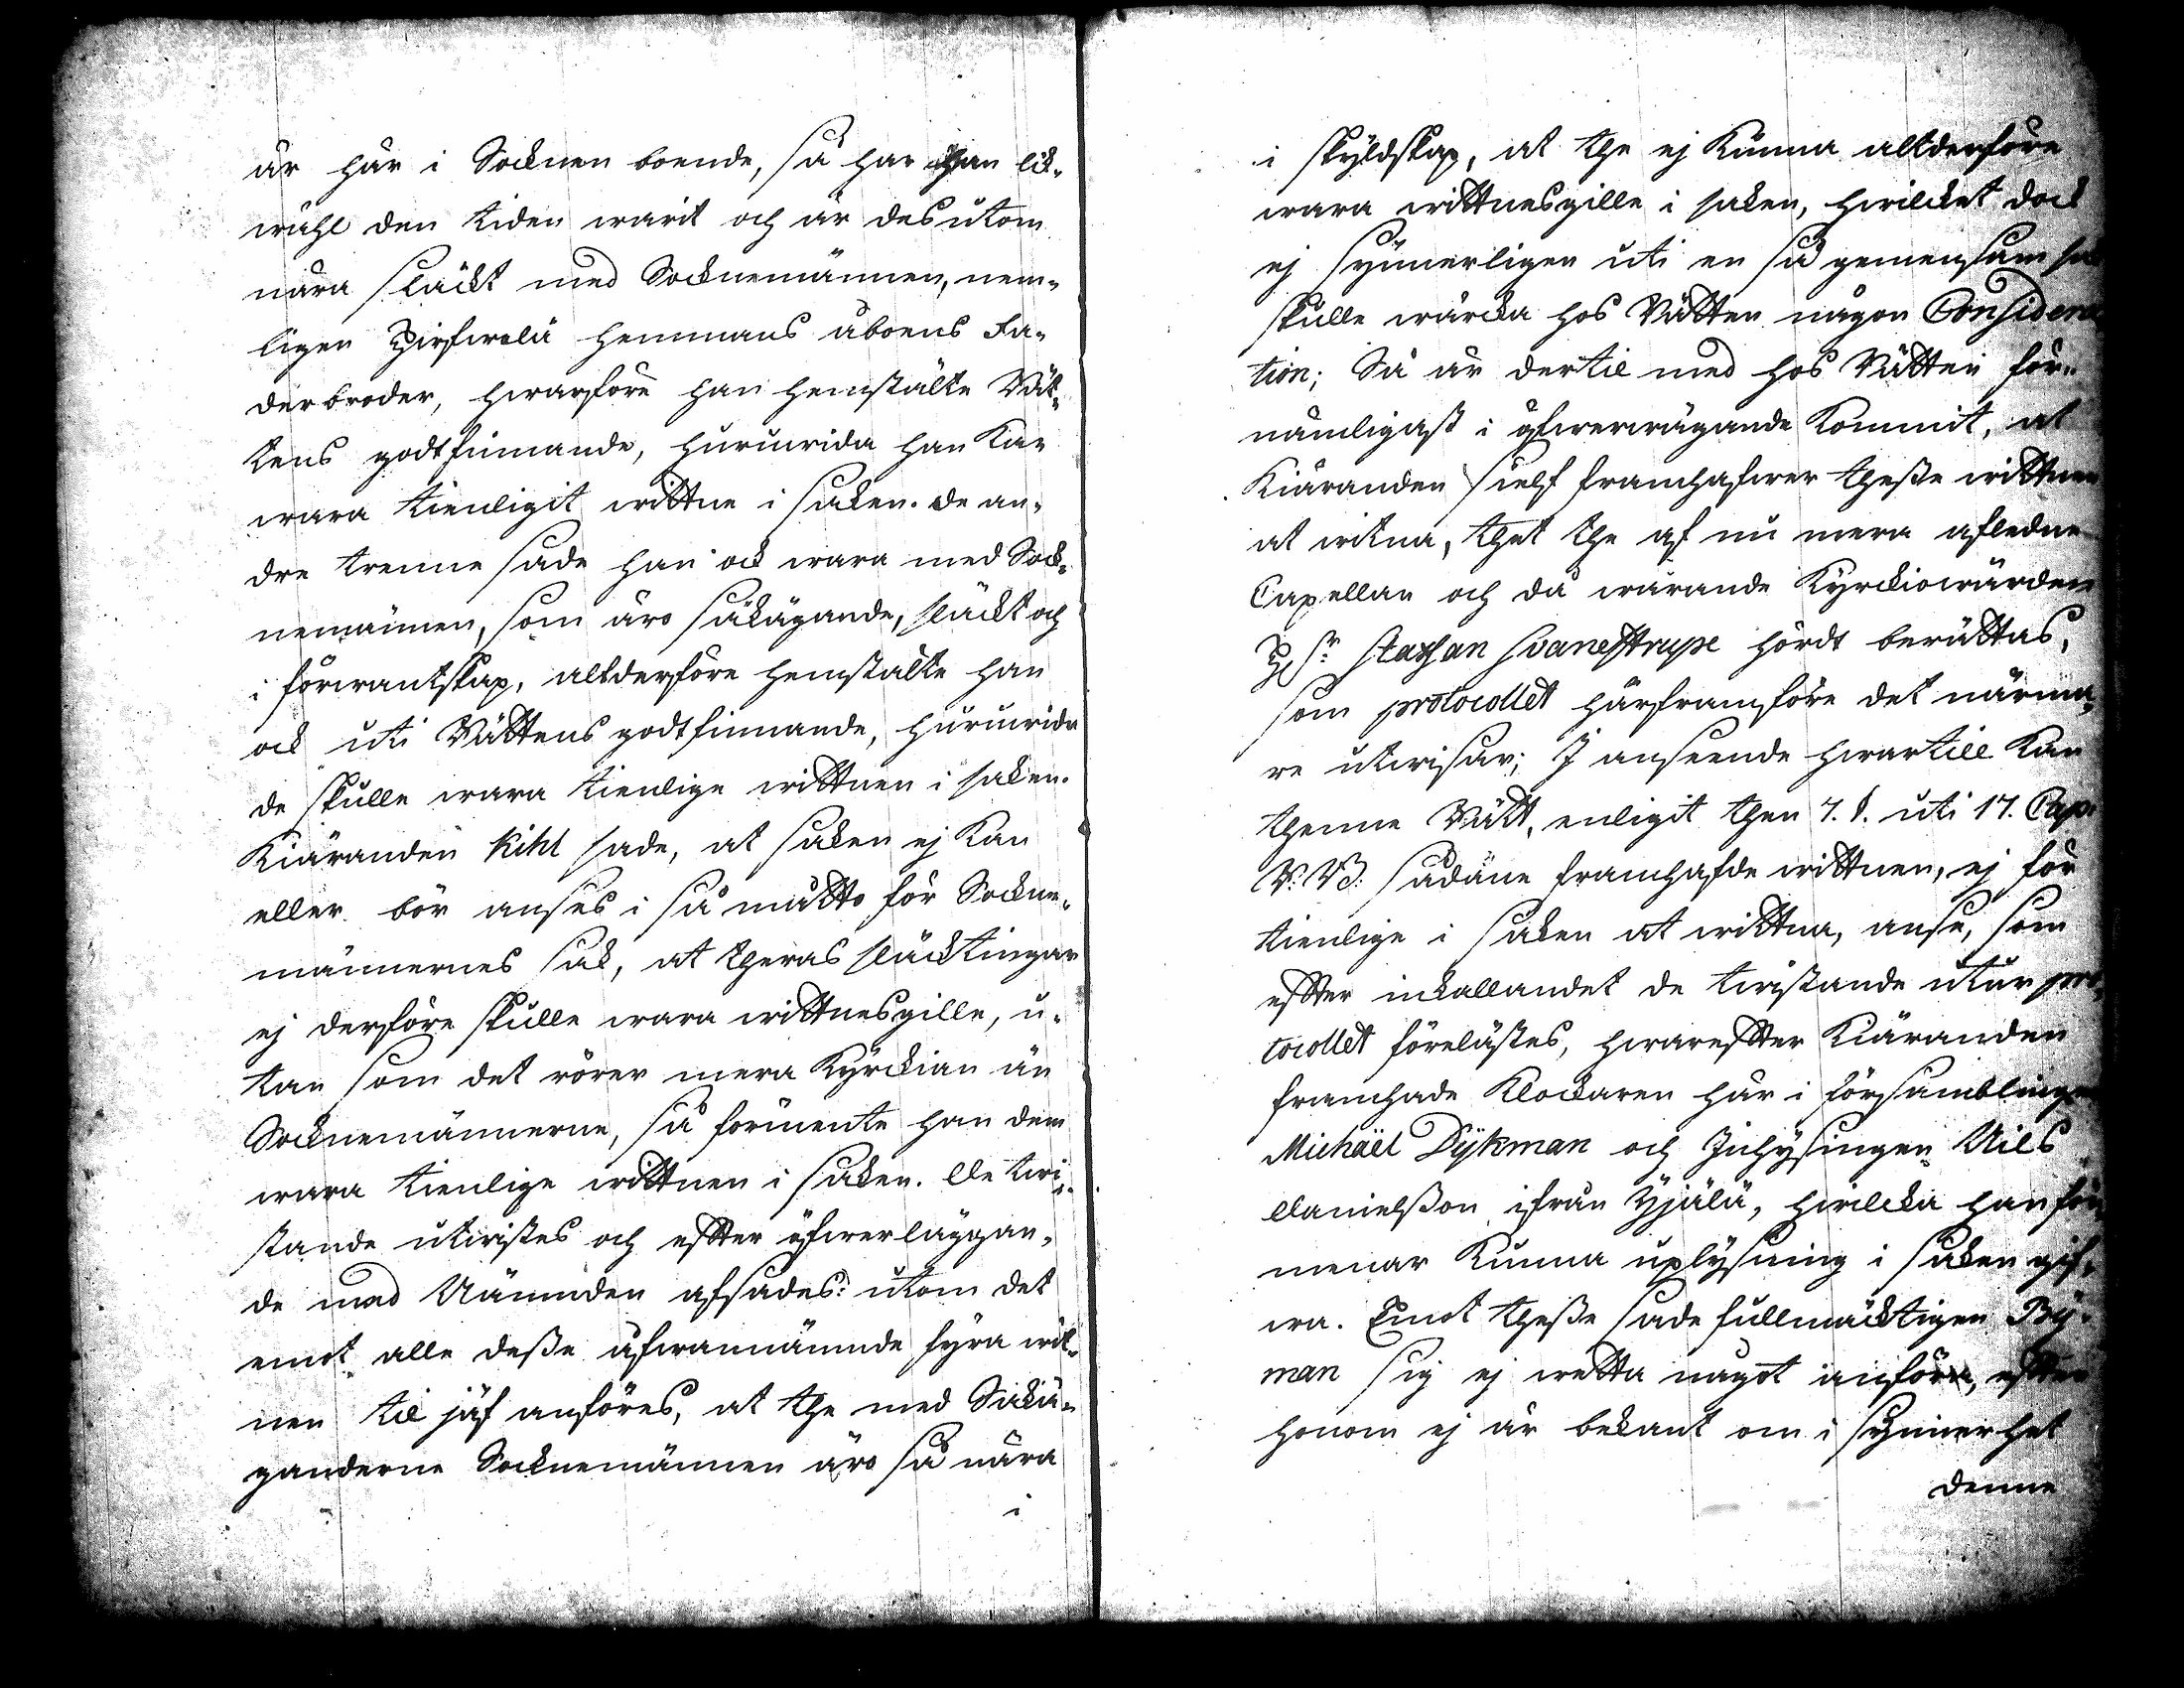 är här i Socknen boende, så har han lik-
wähl den tiden warit och är desutom
nära släckt med Socknemännen, nem-
ligen Hirfwelä hemmans åboens Fa-
derbroder, hwarföre han hemstälte Rät-
tens godtfinnande, huruwida han kan
wara tienligit wittne i saken. de an-
dre trenne sade han ock wara med Sock-
nemännen, som äro sakägande, släckt och
i förwantskap, altderföre hemstälte han
ock uti Rättens godtfinnande, huruwida
de skulle wara tienlige wittnen i saken.
Kiäranden Kihl sade, at saken ej kan
eller bör anses i så måtto för Sockne-
männernes sak, at theras släcktingar
ej derföre skulle wara wittnesgille, u-
tan som det rörer mera Kyrckian än
Socknemännerne, så förmente han dem
wara tienlige wittnen i saken. De twi-
stande utwistes och efter öfwerläggan-
de med Nämnden afsades: utom det
emot alle deße åfwannämnde fyra wit-
nen til jäf anföres, at the med Sakiä-
ganderne Socknemännen äro så nära
i
i skyldskap, at the ej kunna altderföre
wara wittnesgille i saken, hwilcket dock
ej synnerligen uti en så gemensam sak
skulle wärcka hos Rätten någon Considera
tion; Så är dertil med hos Rätten för-
nämligast i öfwerwägande kommit, at
Kiäranden sielf framhafwer theße wittnen
at witna, thet the af nu mera afledne
Capellan och då warande Kyrckiowärden
H Sr. Staffan Svanestrupe hördt berättas,
som protocollet härframföre det närma-
re utwisar; I anseende hwartill kan
thenne Rätt, enligit then 7. §. uti 17. Cap.
R: B: sådane framhafde wittnen, ej för
tienlige i saken at wittna, anse, som
efter inkallandet de twistande utur pro-
tocollet förelästes, hwarefter Kiäranden
framhade Klockaren här i församblingen
Michaël Dÿkman och Inhysingen Nils
Danielßon ifrån Hjälä, hwilcka han för-
menar kunna uplysning i saken gif-
wa. Emot theße sade fullmäcktigen By-
man sig ej wetta något anföra, efter
honom ej är bekant om i synnerhet
denne